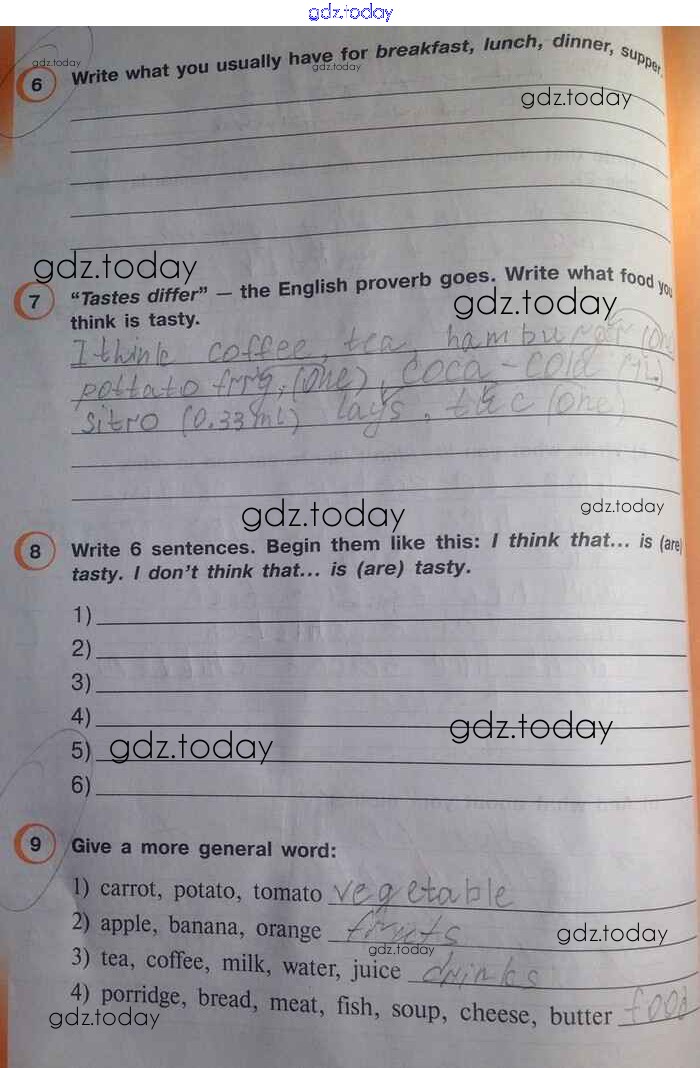 gdz.today
gdz.today
6 Write what you usually have for breakfast, lunch, dinner, supper.
gdz.today
gdz.today
gdz.today
7 “Tastes differ” — the English proverb goes. Write what food you
think is tasty.
gdz.today
I think coffee, tea, hamburger (one
pottato frrg, (one), coca-cola (1L)
sitro (0.33 ml) lays, (one)
gdz.today
gdz.today
8 Write 6 sentences. Begin them like this: I think that... is (are)
tasty. I don't think that... is (are) tasty.
1)
2)
3)
4)
gdz.today
5)
gdz.today
6)
9 Give a more general word:
1) carrot, potato, tomato vegetable
2) apple, banana, orange fruits
gdz.today
gdz.today
3) tea, coffee, milk, water, juice drinks
4) porridge, bread, meat, fish, soup, cheese, butter food
gdz.today